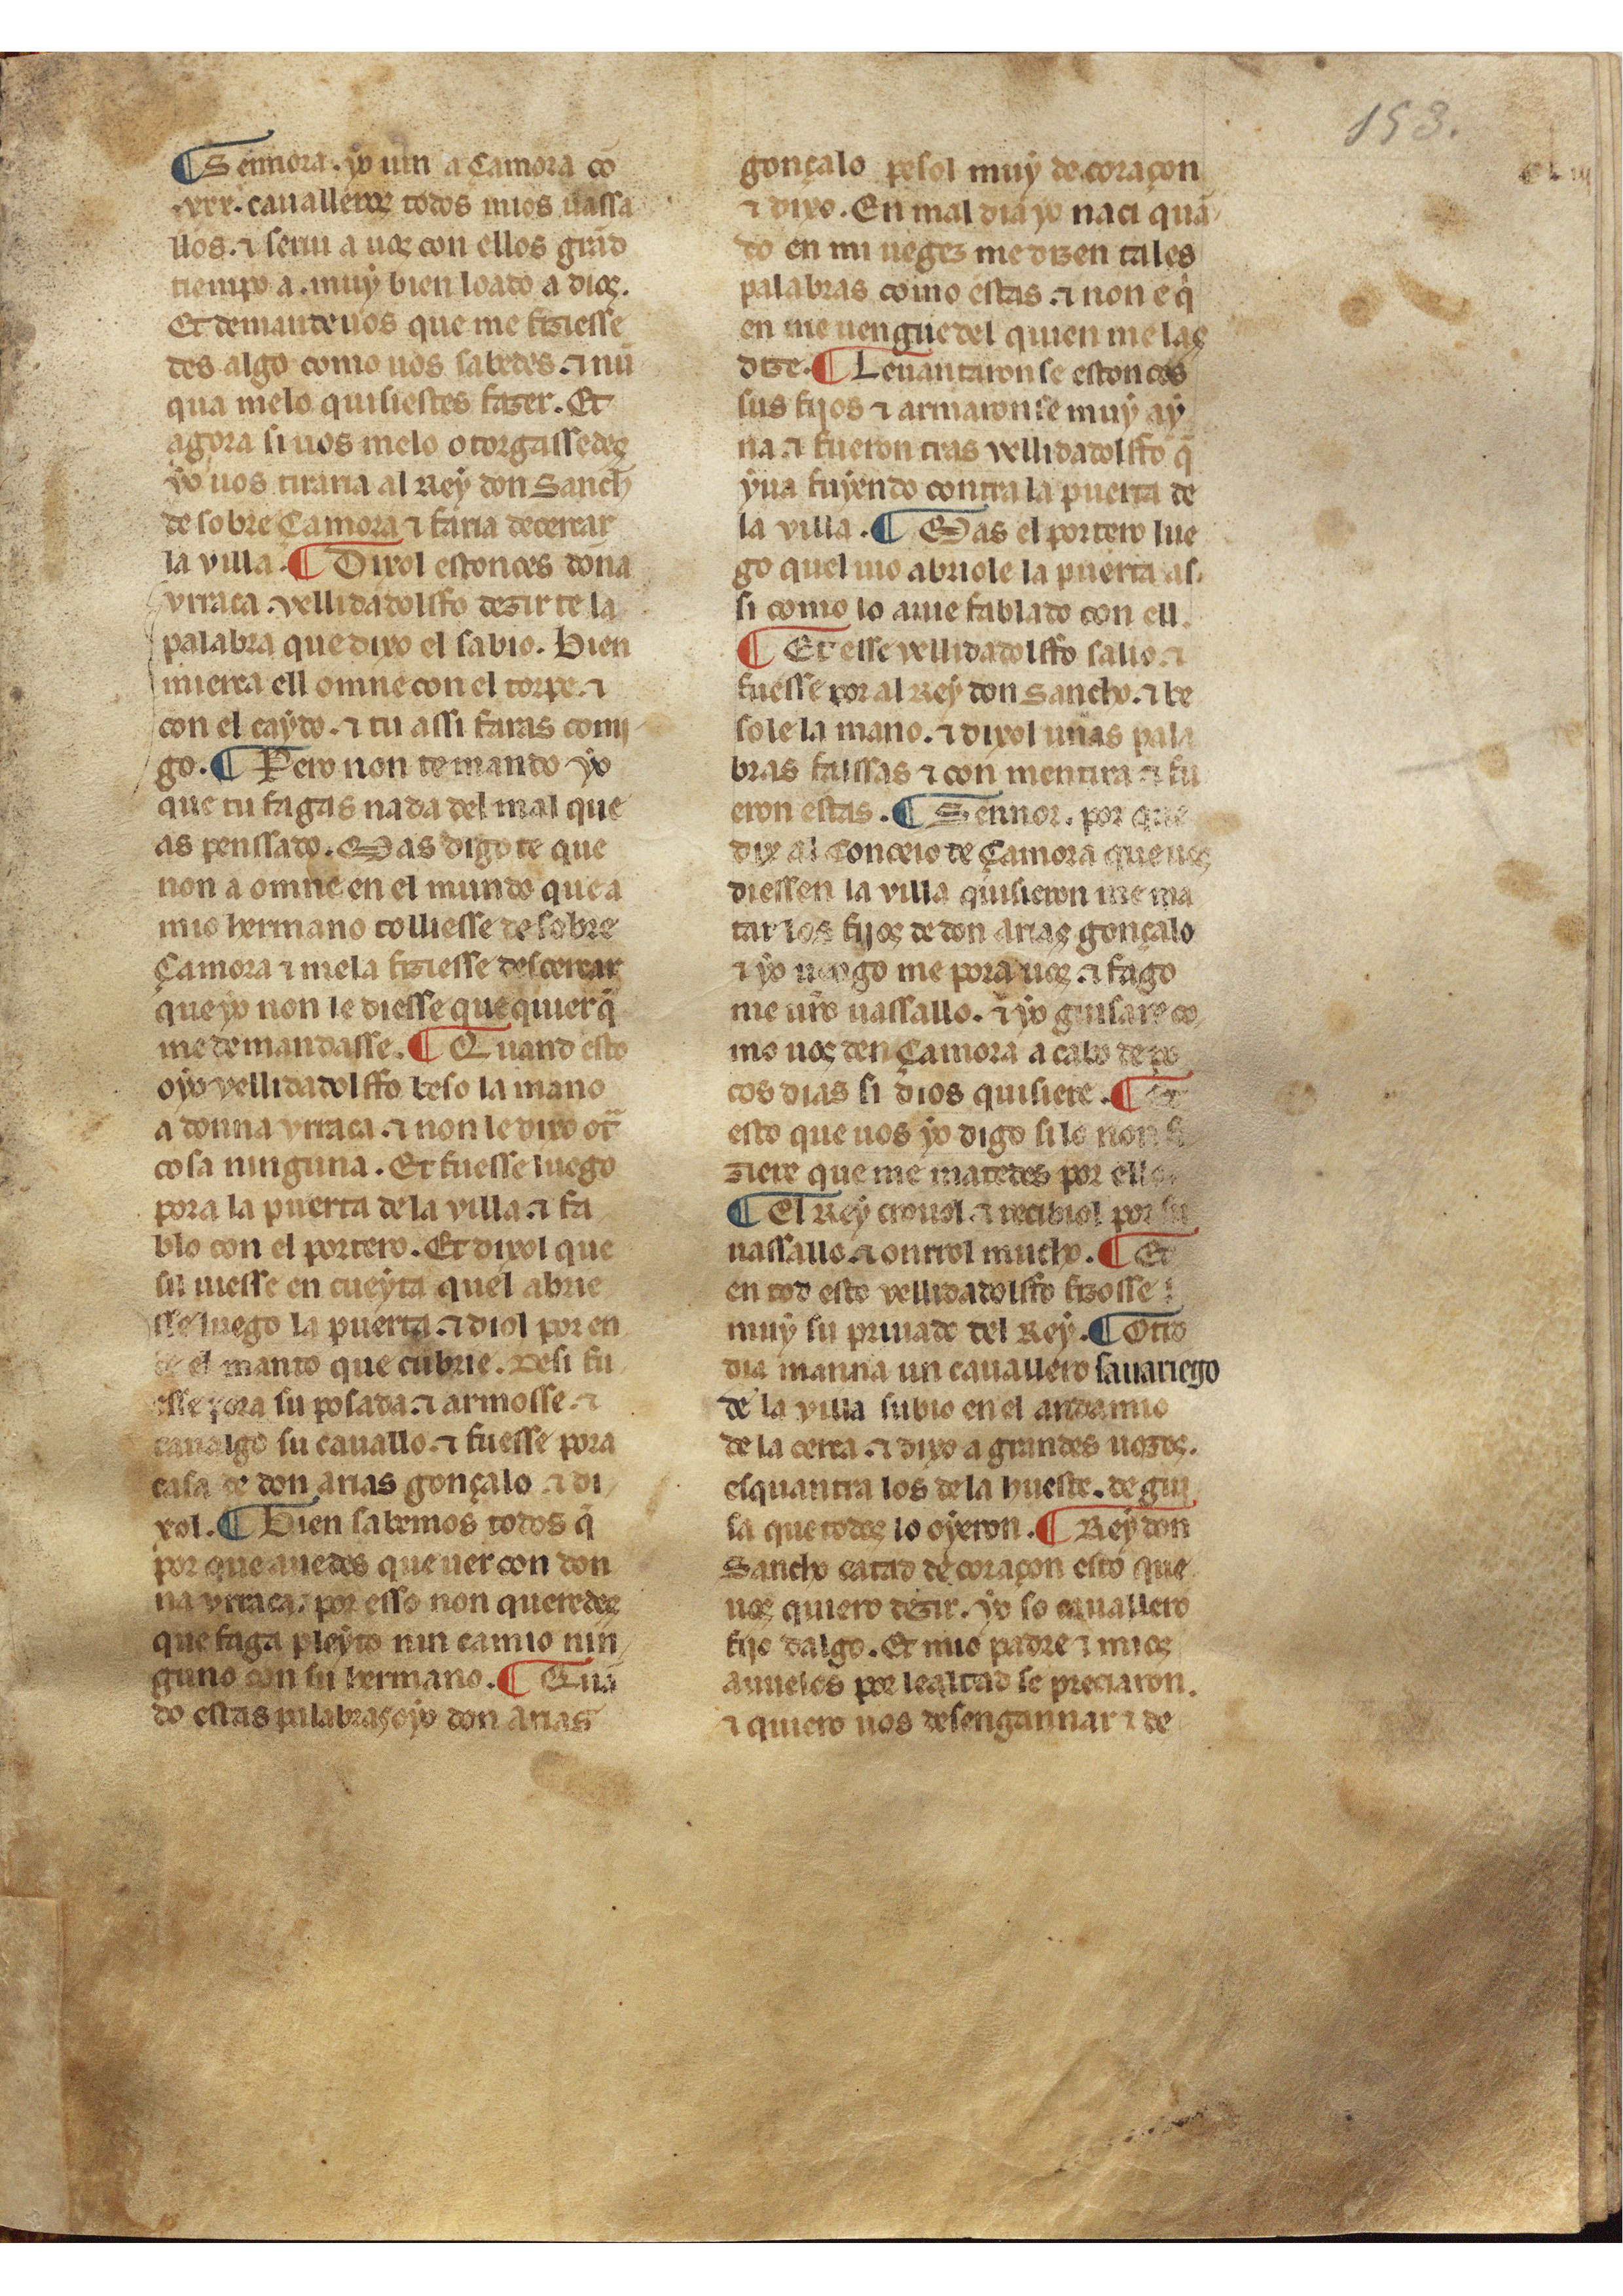 153.
¶ Sennora. yo uin a Çamora cō
.xxx. caualleros todos mios uassa
llos. ⁊ serui a uos con ellos grād
tiempo a. muy bien loado a dios.
Et demande uos que me fiziesse
des algo como uos sabedes. ⁊ nū
qua melo quisiestes fazer. Et
agora si uos melo otorgassedes
yo uos tiraria al Rey don Sancho
de sobre Çamora ⁊ faria decercar
la villa. ¶ Dixol estonces dona
vrraca. vellid adolffo dezir te e la
palabra que dixo el sabio. Bien
mierca ell omne con el torpe. ⁊
con el caydo. ⁊ tu assi faras comi
go. ¶ Pero non te mando yo
que tu fagas nada del mal que
as penssado. Mas digo te que
non a omne en el mundo que a
mio hermano tolliesse de sobre
Çamora ⁊ me la fiziesse descercar
que yo non le diesse que quier q̄
me demandasse. ¶ Quand esto
oyo vellid adolffo beso la mano
a donna vrraca. ⁊ non le dixo otr̄
cosa ninguna. Et fuesse luego
pora la puerta de la villa. ⁊ fa
blo con el portero. Et dixol que
sil uiesse en cueyta quel abrie
sse luego la puerta. ⁊ diol por en
de el manto que cubrie. Desi fu
esse pora su posada. ⁊ armosse. ⁊
caualgo su cauallo. ⁊ fuesse pora
casa de don arias gonçalo ⁊ di
xol. ¶ Bien sabemos todos q̄
por que auedes que uer con don
na vrraca. por esso non queredes
que faga pleyto nin camio nin
guno con su hermano. ¶ Quā
do estas palabras oyo don Arias
gonçalo pesol muy de coraçon
⁊ dixo. En mal dia yo naci quā
do en mi uegez me dizen tales
palabras como estas. ⁊ non e q̄
en me uengue del quien me las
dize. ¶ Leuantaron se estonces
sus fijos ⁊ armaron se muy ay
na. ⁊ fueron tras vellid adolffo q̄
yua fuyendo contra la puerta de
la villa. ¶ Mas el portero lue
go quel uio abriole la puerta as
si como lo auie fablado con ell.
¶ Et esse vellid adolffo salio. ⁊
fuesse por al Rey don Sancho. ⁊ be
sole la mano. ⁊ dixol unas pala
bras falssas ⁊ con mentira ⁊ fu
eron estas. ¶ Sennor. por que
dix al Conceio de Çamora que uos
diessen la villa quisieron me ma
tar los fijos de don arias gonçalo
⁊ yo uengo me pora uos. ⁊ fago
me ur̄o uassallo. ⁊ yo guisare co
mo uos den Çamora a cabo de po
cos dias si dios quisiere. ¶ Et
esto que uos yo digo si lo non fi
ziere que me matedes por ello.
¶ El Rey crouol. ⁊ recibiol por su
uassallo. ⁊ onrrol mucho. ¶ Et
en tod esto vellid adolffo fizosse
muy su priuado del Rey. ¶ Otro
dia manna un cauallero sauariego
de la villa subio en el andamio
de la cerca. ⁊ dixo a grandes uozes.
esquantra los de la hueste. de gui
sa que todos lo oyeron. ¶ Rey don
Sancho catad de coraçon esto que
uos quiero dezir. yo so cauallero
fijo dalgo. Et mio padre ⁊ mios
auuelos por lealtad se preciaron.
⁊ quiero uos desengannar ⁊ de